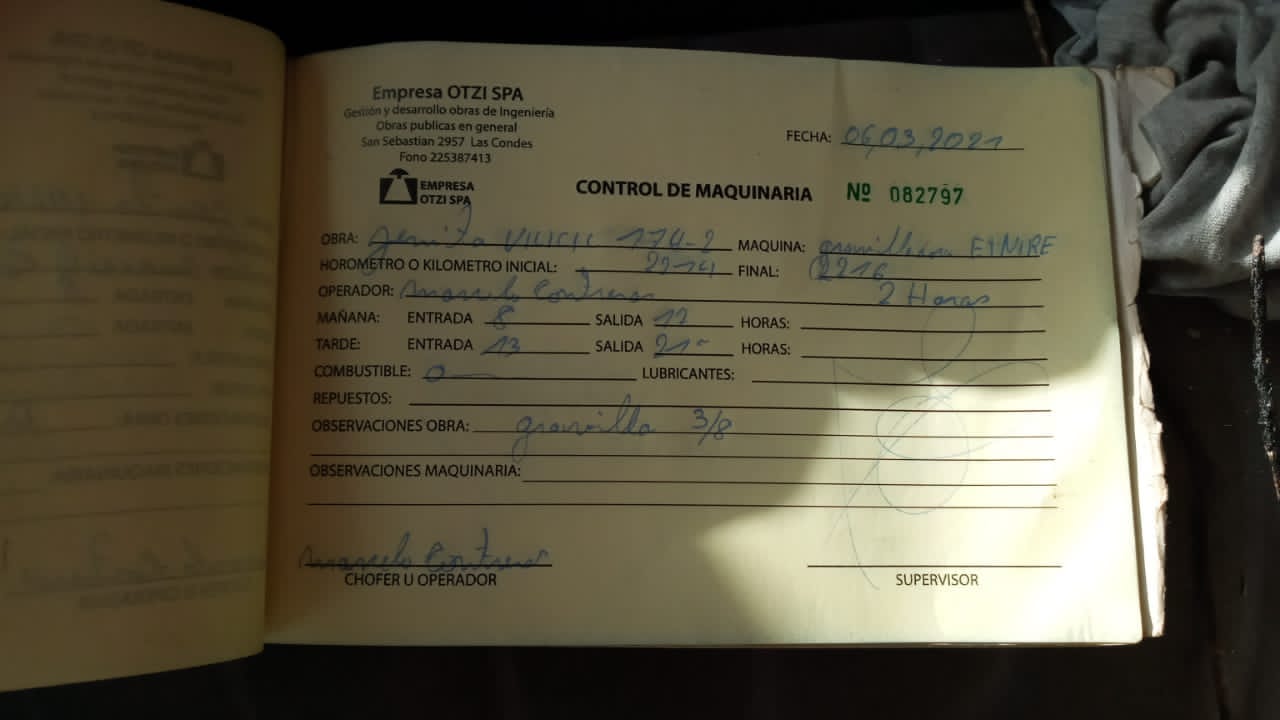 Empresa OTZI SPA
Gestión y desarrollo obras de Ingeniería
Obras publicas en general
San Sebastian 2957 Las Condes
Fono 225387413
FECHA: 06,03,2021
EMPRESA
OTZI SPA
CONTROL DE MAQUINARIA Nº 082797
OBRA: 174-2 MAQUINA:
HOROMETRO O KILOMETRO INICIAL: 2214 FINAL: 2216
OPERADOR: Marcelo Contreras 2 Horas
MAÑANA: ENTRADA 8 SALIDA 12 HORAS:
TARDE: ENTRADA 13 SALIDA 21 HORAS:
COMBUSTIBLE: 0 LUBRICANTES:
REPUESTOS:
OBSERVACIONES OBRA: gravilla 3/8
OBSERVACIONES MAQUINARIA:
Marcelo Contreras
CHOFER U OPERADOR SUPERVISOR